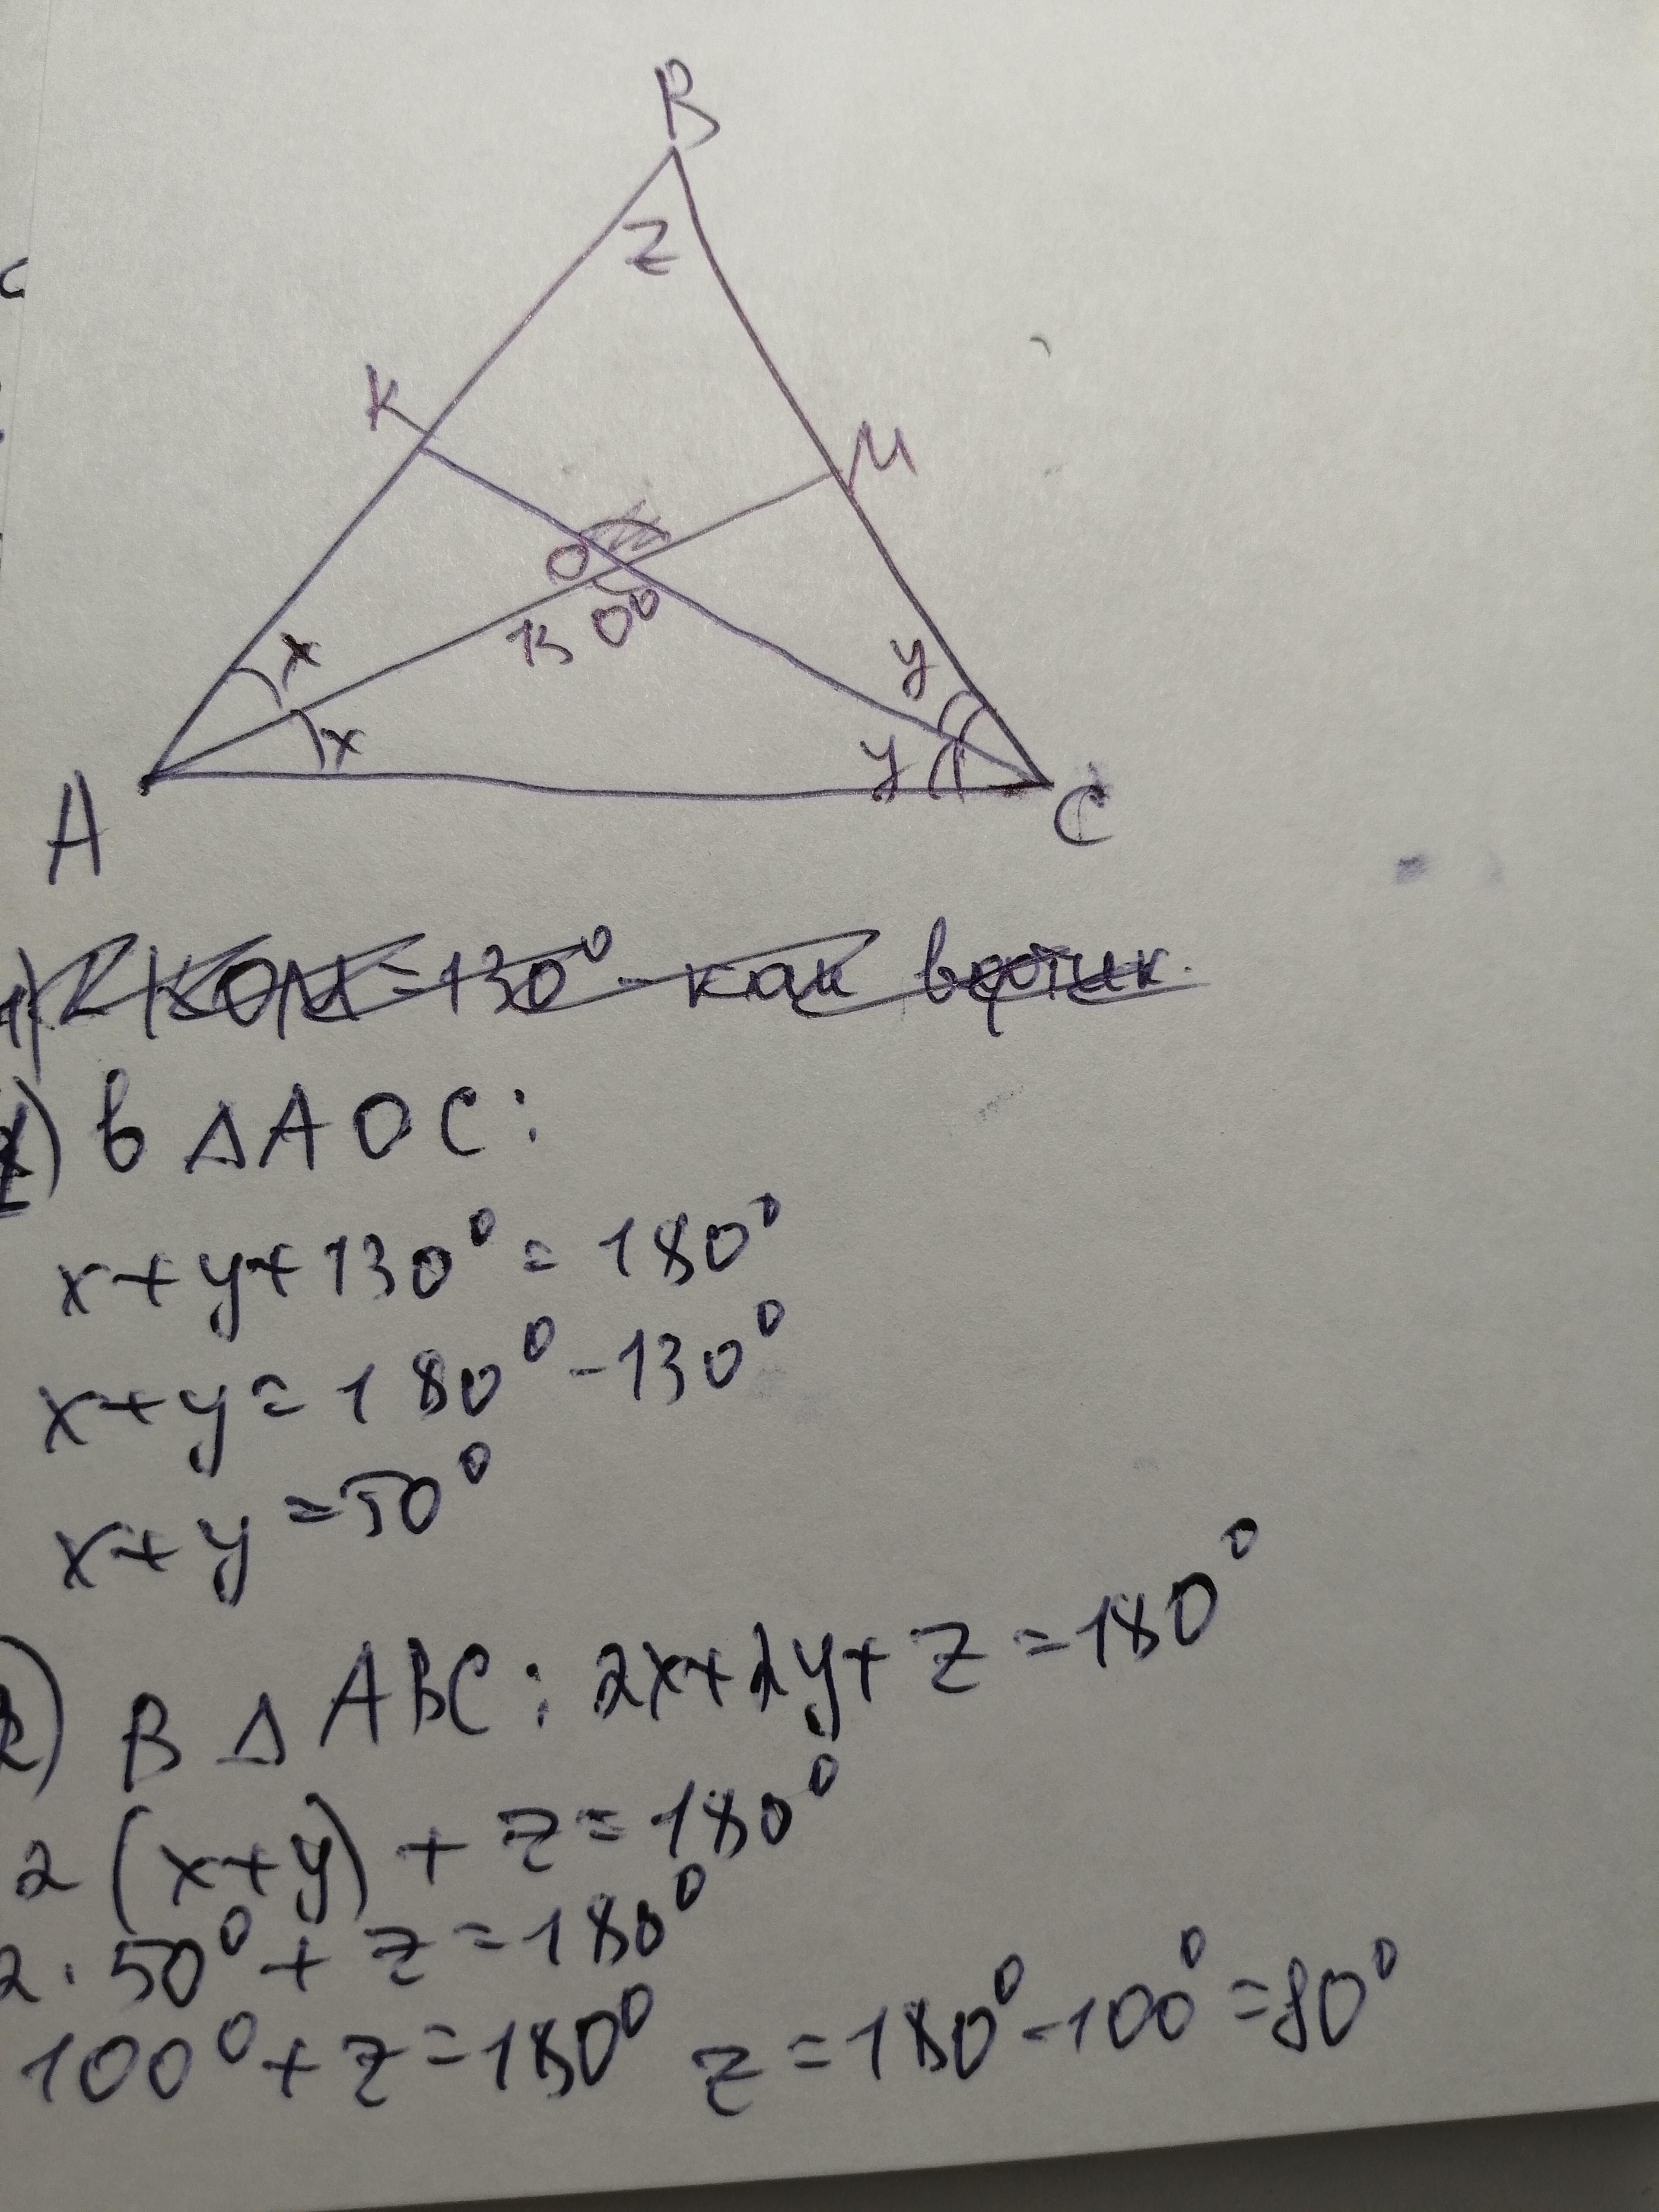 B
z
K
M
O
130°
x
x
y
y
A
C
1) ∠KOM = 130° - как вертик.
1) в △AOC:
x+y+130° = 180°
x+y = 180° - 130°
x+y = 50°
2) В △ABC: 2x+2y+z = 180°
2(x+y) + z = 180°
2·50° + z = 180°
100° + z = 180° z = 180° - 100° = 80°